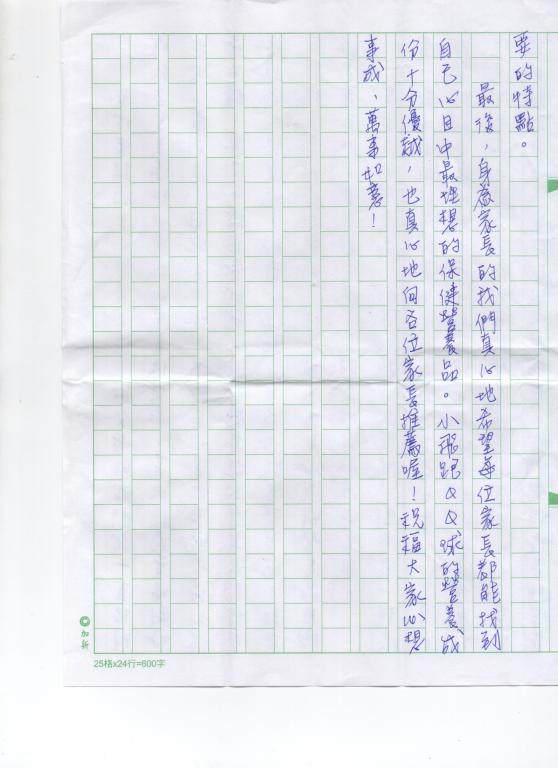 要的特點。
最後，身為家長的我們真心地希望每位家長都能找到
自己心目中最理想的保健營養品。小飛跑QQ球的營養成
份十分優越，也真心地向各位家長推薦喔！祝福大家心想
事成、萬事如意！
加新
25格x24行=600字